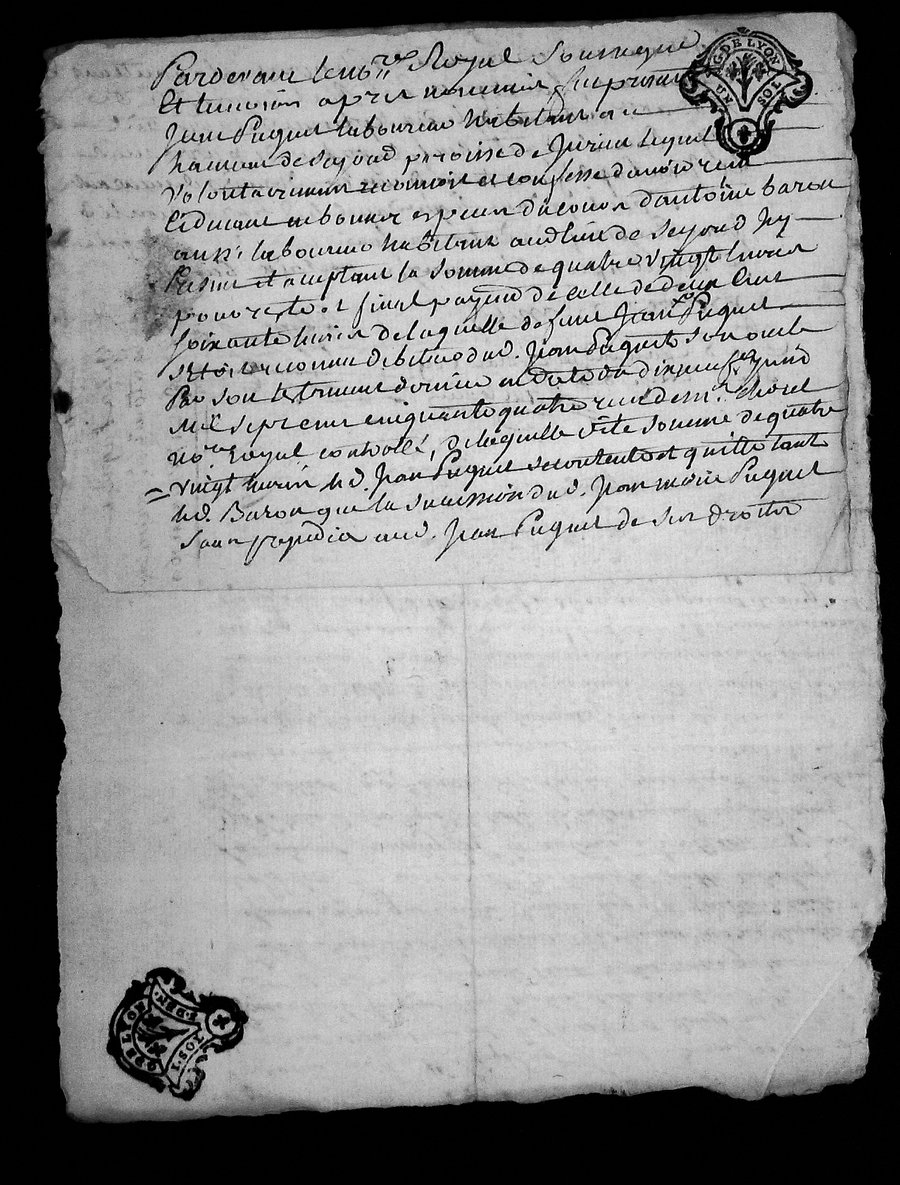 Pardevant le no.re Royal Soussigné
Et temoins apres nommés fut présent
G. DE LYON
UN SOL
Jean Puquet laboureur habitant au
hameau de Seyoud paroisse de lequel
Volontairement reconnoit et confesse d'avoir reçu
Cidevant en bonnes especes du cours d'antoine baron
aussi laboureur habitant audt lieu de Seyoud icy
présent et acceptant la somme de quatre vingt livres
pour reste et final payemt de celle de deux cent
soixante livres de laquelle defunt Jean Puquet
s'étoit reconnu debiteur dud. Jean Puquet son oncle
Par son testament dernier en datte du dix neuf
Mil sept cent cinquante quatre reçu de m.e
no.re Royal controllé, de laquelle dite somme de quatre
vingt livres led. Jean Puquet se contente et quitte tant
led. Baron que la succession dud. Jean marie Puquet
Sans prejudice aud. Jean Puquet de ses droits
G DE LYON
1. SOL